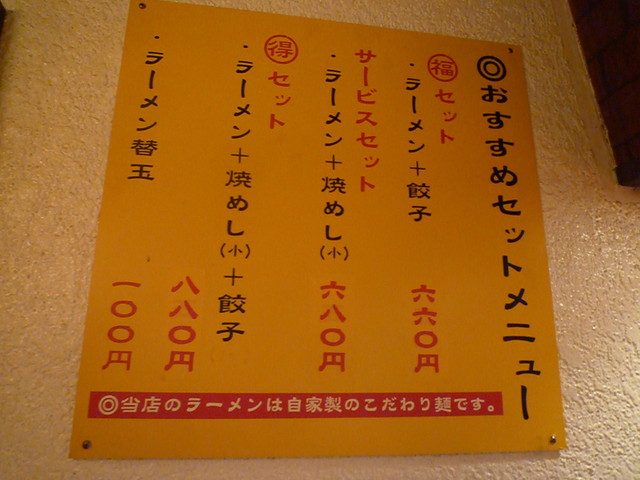 ◎おすすめセットメニュー
㊕セット
・ラーメン＋餃子
六六〇円
サービスセット
・ラーメン＋焼めし(小)
六八〇円
得セット
・ラーメン＋焼めし(小)＋餃子
八八〇円
・ラーメン替玉
一〇〇円
◎当店のラーメンは自家製のこだわり麺です。